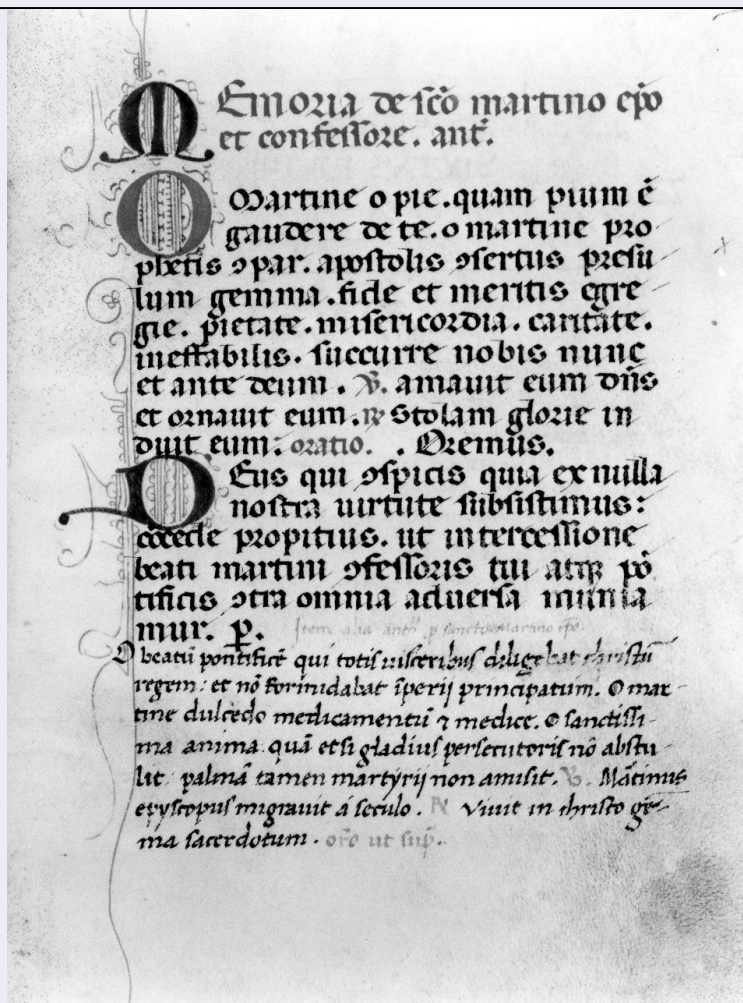 MEmoria de sc̄o martino ep̄o
et confessore. ant̄.
O Martine o pie. quam pium ē
gaudere de te. o martine pro
phetis ꝯpar. apostolis ꝯsertus presu
lum gemma. fide et meritis egre
gie. pietate. misericordia. caritate.
ineffabilis. succurre nobis nunc
et ante deum. ℣. amauit eum dn̄s
et ornauit eum. ℟ Stolam glorie in
duit eum: oratio. . Oremus.
DEus qui ꝯspicis quia ex nulla
nostra uirtute subsistimus:
cōcede propitius. ut intercessione
beati martini ꝯfessoris tui atqꝫ pō
tificis ꝯtra omnia aduersa munia
mur. P.
Item alia anth̄. p sancto martino ep̄o.
O beatū pontificē qui totis uisceribus diligebat christū
regem: et nō formidabat īperij principatum. O mar
tine dulcedo medicamentū ⁊ medice. O sanctissi-
ma anima. quā etsi gladius persecutoris nō abstu
lit palmā tamen martyrij non amisit. ℣. Mātinus
epyscopus migrauit á seculo. ℟ Viuit in christo gē-
ma sacerdotum. orō ut sup̄.